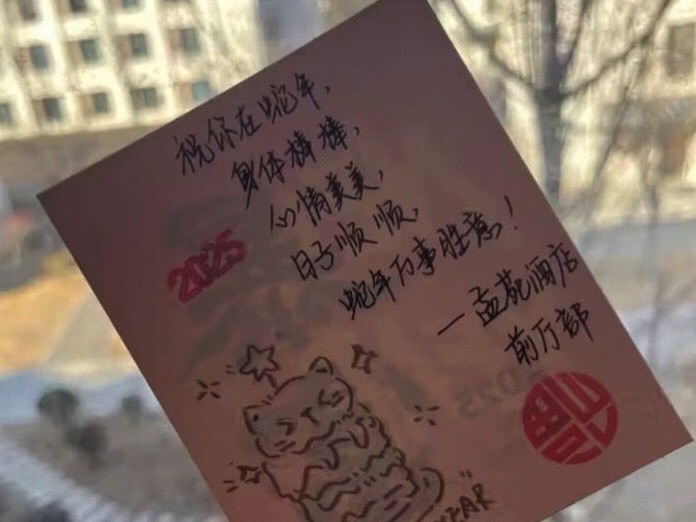 祝你在蛇年,
身体棒棒,
心情美美,
日子顺顺,
蛇年万事胜意!
—孟苑酒店
前厅部
2025
2025
YEAR